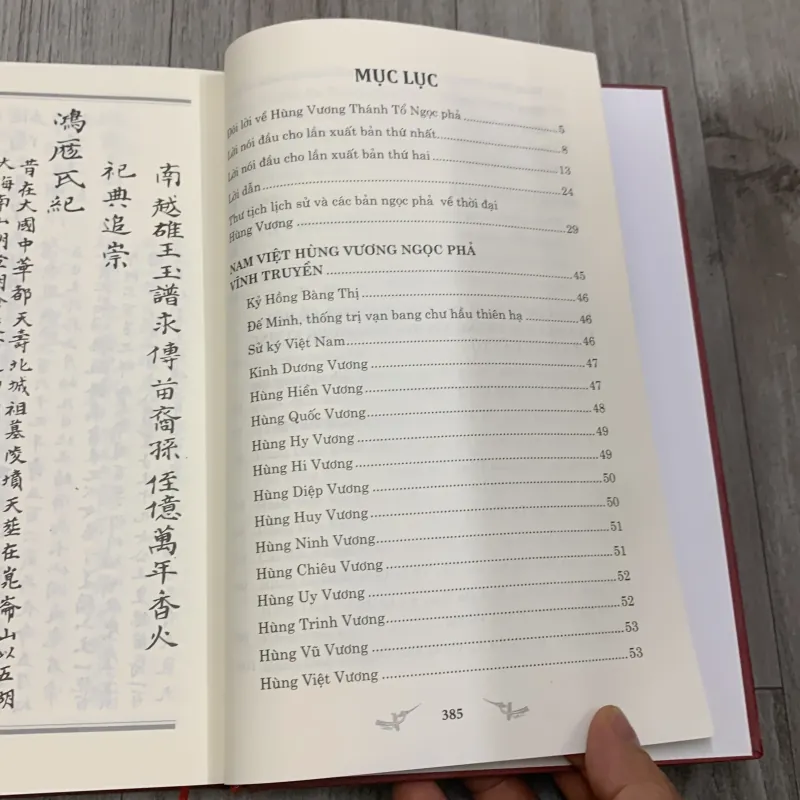 南越雄王玉譜永傳苗裔孫侄億萬年香火
祀典追崇
鴻厖氏紀
昔在大國中華都天壽北城祖墓陵墳天塟在崑崙山以五胡
MỤC LỤC
Đôi lời về Hùng Vương Thánh Tổ Ngọc phả ........ 5
Lời nói đầu cho lần xuất bản thứ nhất ........ 8
Lời nói đầu cho lần xuất bản thứ hai ........ 13
Lời dẫn ........ 24
Thư tịch lịch sử và các bản ngọc phả về thời đại
Hùng Vương ........ 29
NAM VIỆT HÙNG VƯƠNG NGỌC PHẢ
VĨNH TRUYỀN ........ 45
Kỷ Hồng Bàng Thị ........ 46
Đế Minh, thống trị vạn bang chư hầu thiên hạ ........ 46
Sử ký Việt Nam ........ 46
Kinh Dương Vương ........ 47
Hùng Hiền Vương ........ 47
Hùng Quốc Vương ........ 48
Hùng Hy Vương ........ 49
Hùng Hi Vương ........ 49
Hùng Diệp Vương ........ 50
Hùng Huy Vương ........ 50
Hùng Ninh Vương ........ 51
Hùng Chiêu Vương ........ 51
Hùng Uy Vương ........ 52
Hùng Trinh Vương ........ 52
Hùng Vũ Vương ........ 53
Hùng Việt Vương ........ 53
385